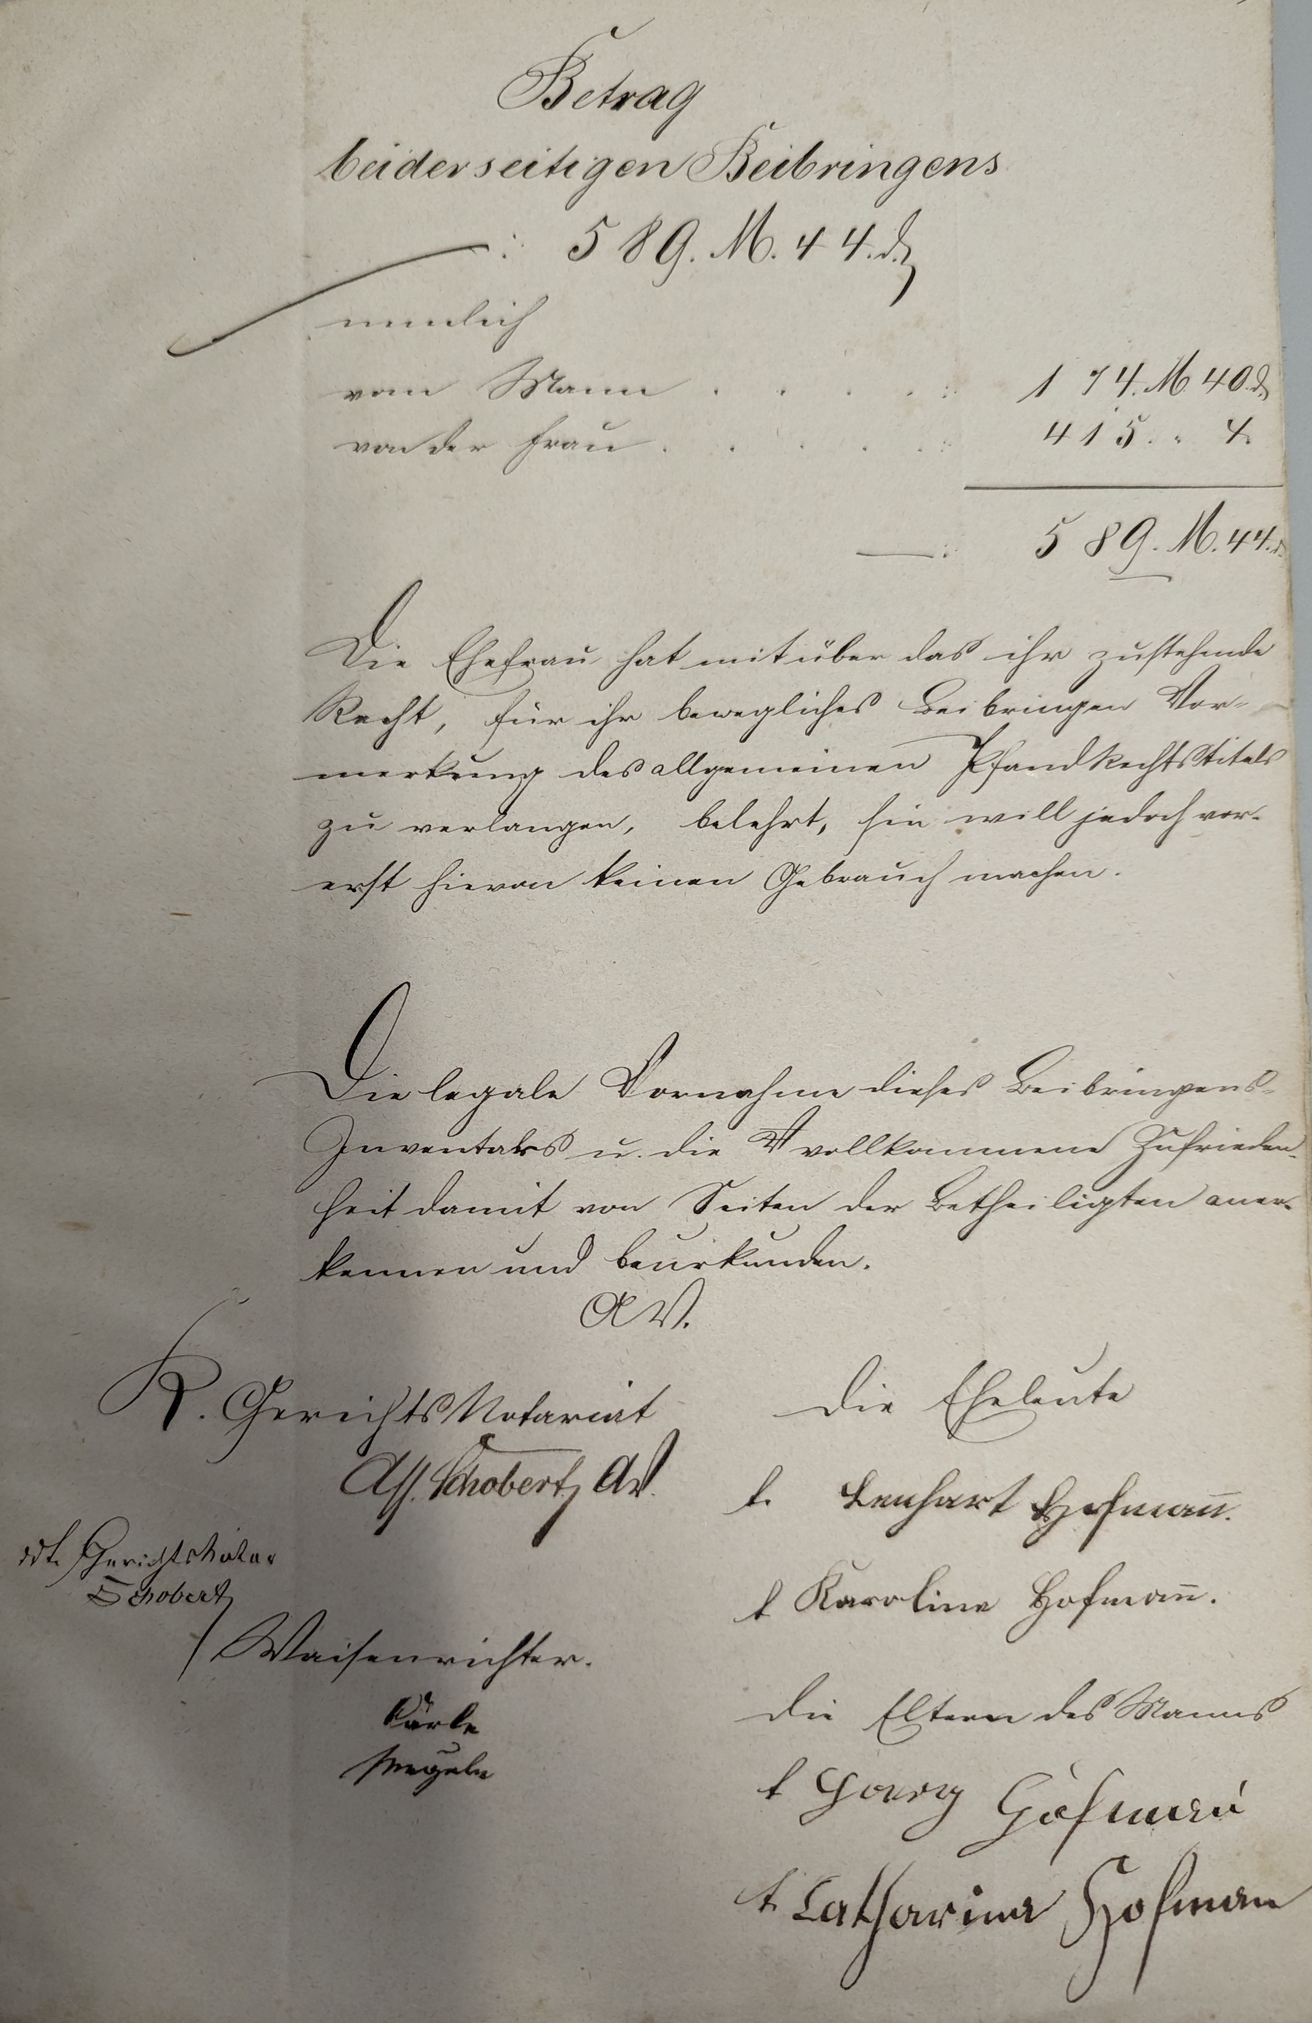 Betrag
beiderseitigen Beibringens
—: 589. M. 44. ₰
nemlich
vom Mann . . . . . : 174. M 40. ₰
von der Frau . . . . . : 415. " 4.
—: 589. M. 44. ₰
Die Ehefrau hat mit über das ihr zustehende
Recht, für ihr bewegliches Beibringen Vor-
merkung des allgemeinen Pfandrechtstitels
zu verlangen, belehrt, sie will jedoch vor-
erst hievon keinen Gebrauch machen.
Die legale Vornahme dieses Beibringens-
Inventars u. die vollkommene Zufrieden-
heit damit von Seiten der Betheiligten aner-
kennen und beurkunden.
A V.
K. Gerichts Notariat
Die Eheleute
Ass. Schobert, AV.
t. Lenhart Hofmann.
vdt. Gerichtsnotar
Schobert
t Karoline Hofmann.
Waisenrichter.
Die Eltern des Manns
t Georg Hofman
t. Catharina Hofman